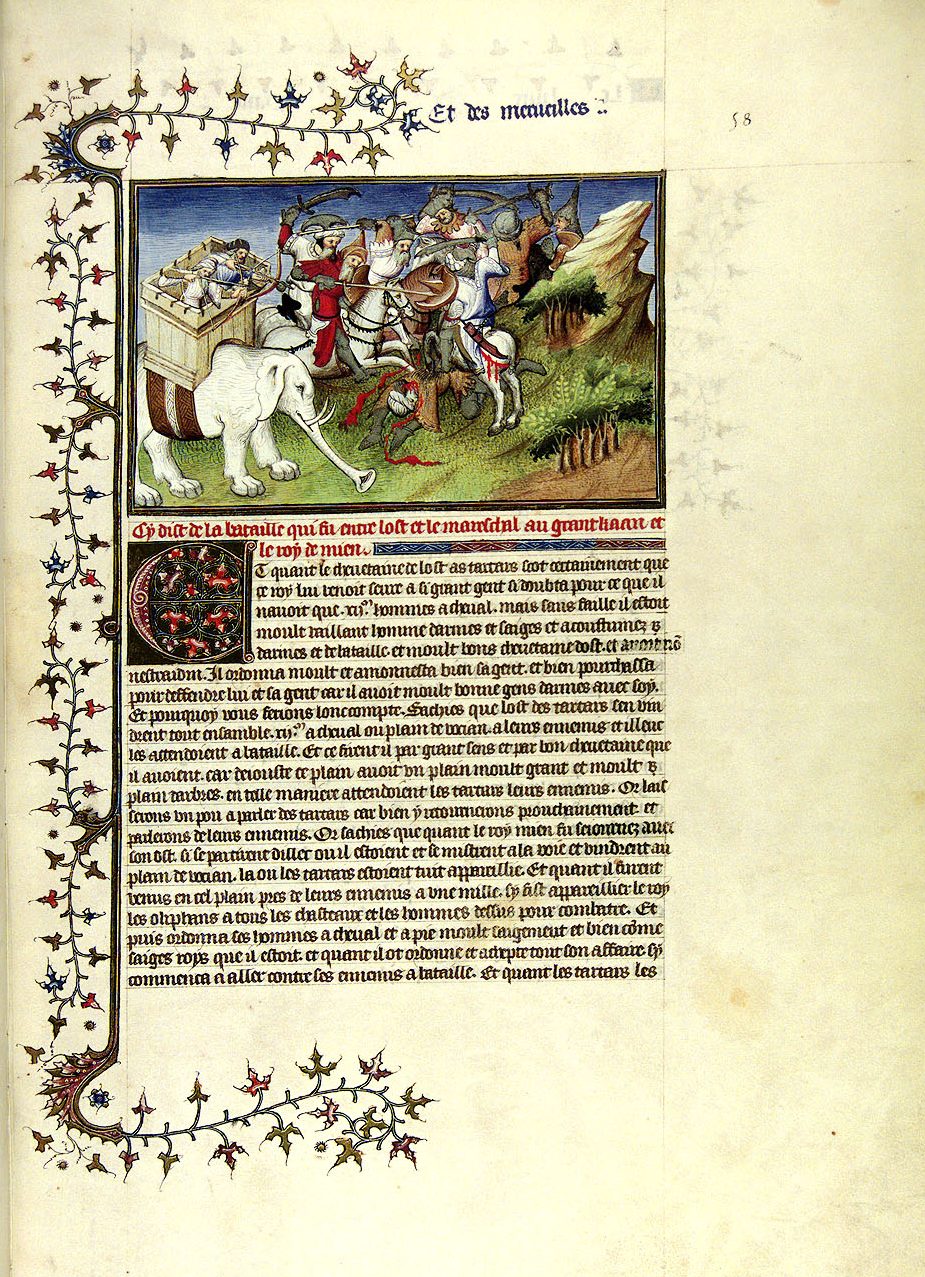 Et des merueilles
58
Cy dist de la bataille qui fu entre lost et le mareschal au grant kaan et
le roy de mien.
Et quant le cheuetaine de lost as tartars scot certainement que
ce roy lui venoit seure a si grant gent si doubta pour ce que il
nauoit que .xij.m hommes a cheual. mais sans faille il estoit
moult vaillant homme darmes et saiges et acoustumez
darmes et de bataille. et moult bons cheuetaine dost. et
Il ordonna moult et amonnesta bien sa gent. et bien pourchassa
pour deffendre lui et sa gent car il auoit moult bonne gens darmes auec soy.
Et pourquoy vous feroies lonc compte. Sachies que lost des tartars sen vin
drent tout ensamble .xij.m a cheual ou plain de vocian. a leurs ennemis et illeuc
les attendoient a bataille. Et ce firent il par grant sens et par bon cheuetaine que
il auoient. car deiouste ce plain auoit vn plain moult grant et moult
plain darbres. en telle maniere attendoient les tartars leurs ennemis. Or lais
serons vn pou a parler des tartars car bien y retournerons prouchainement. et
parlerons de leurs ennemis. Or sachies que quant le roy mien fu seiournez auec
son ost. si se partirent dillec ou il estoient et se mistrent a la voie et vindrent au
plain de vocian. la ou les tartars estoient tuit appareillie. Et quant il furent
venus en cel plain pres de leurs ennemis a vne mille. sy fist appareillier le roy
les oliphans a tous les chasteaux et les hommes dessus pour combatre. Et
puis ordonna ses hommes a cheual et a pie moult saigement et bien cōme
saiges roys que il estoit. et quant il ot ordonne et tout son affaire. sy
commenca a aller contre ses ennemis a bataille. Et quant les tartars les